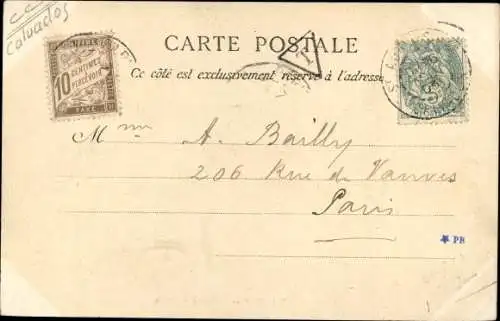 Calvados
CARTE POSTALE
Ce côté est exclusivement réservé à l'adresse
10
CENTIMES
A
PERCEVOIR
TAXE
T
5
Mme A. Bailly
206 Rue de Vanves
Paris
PB